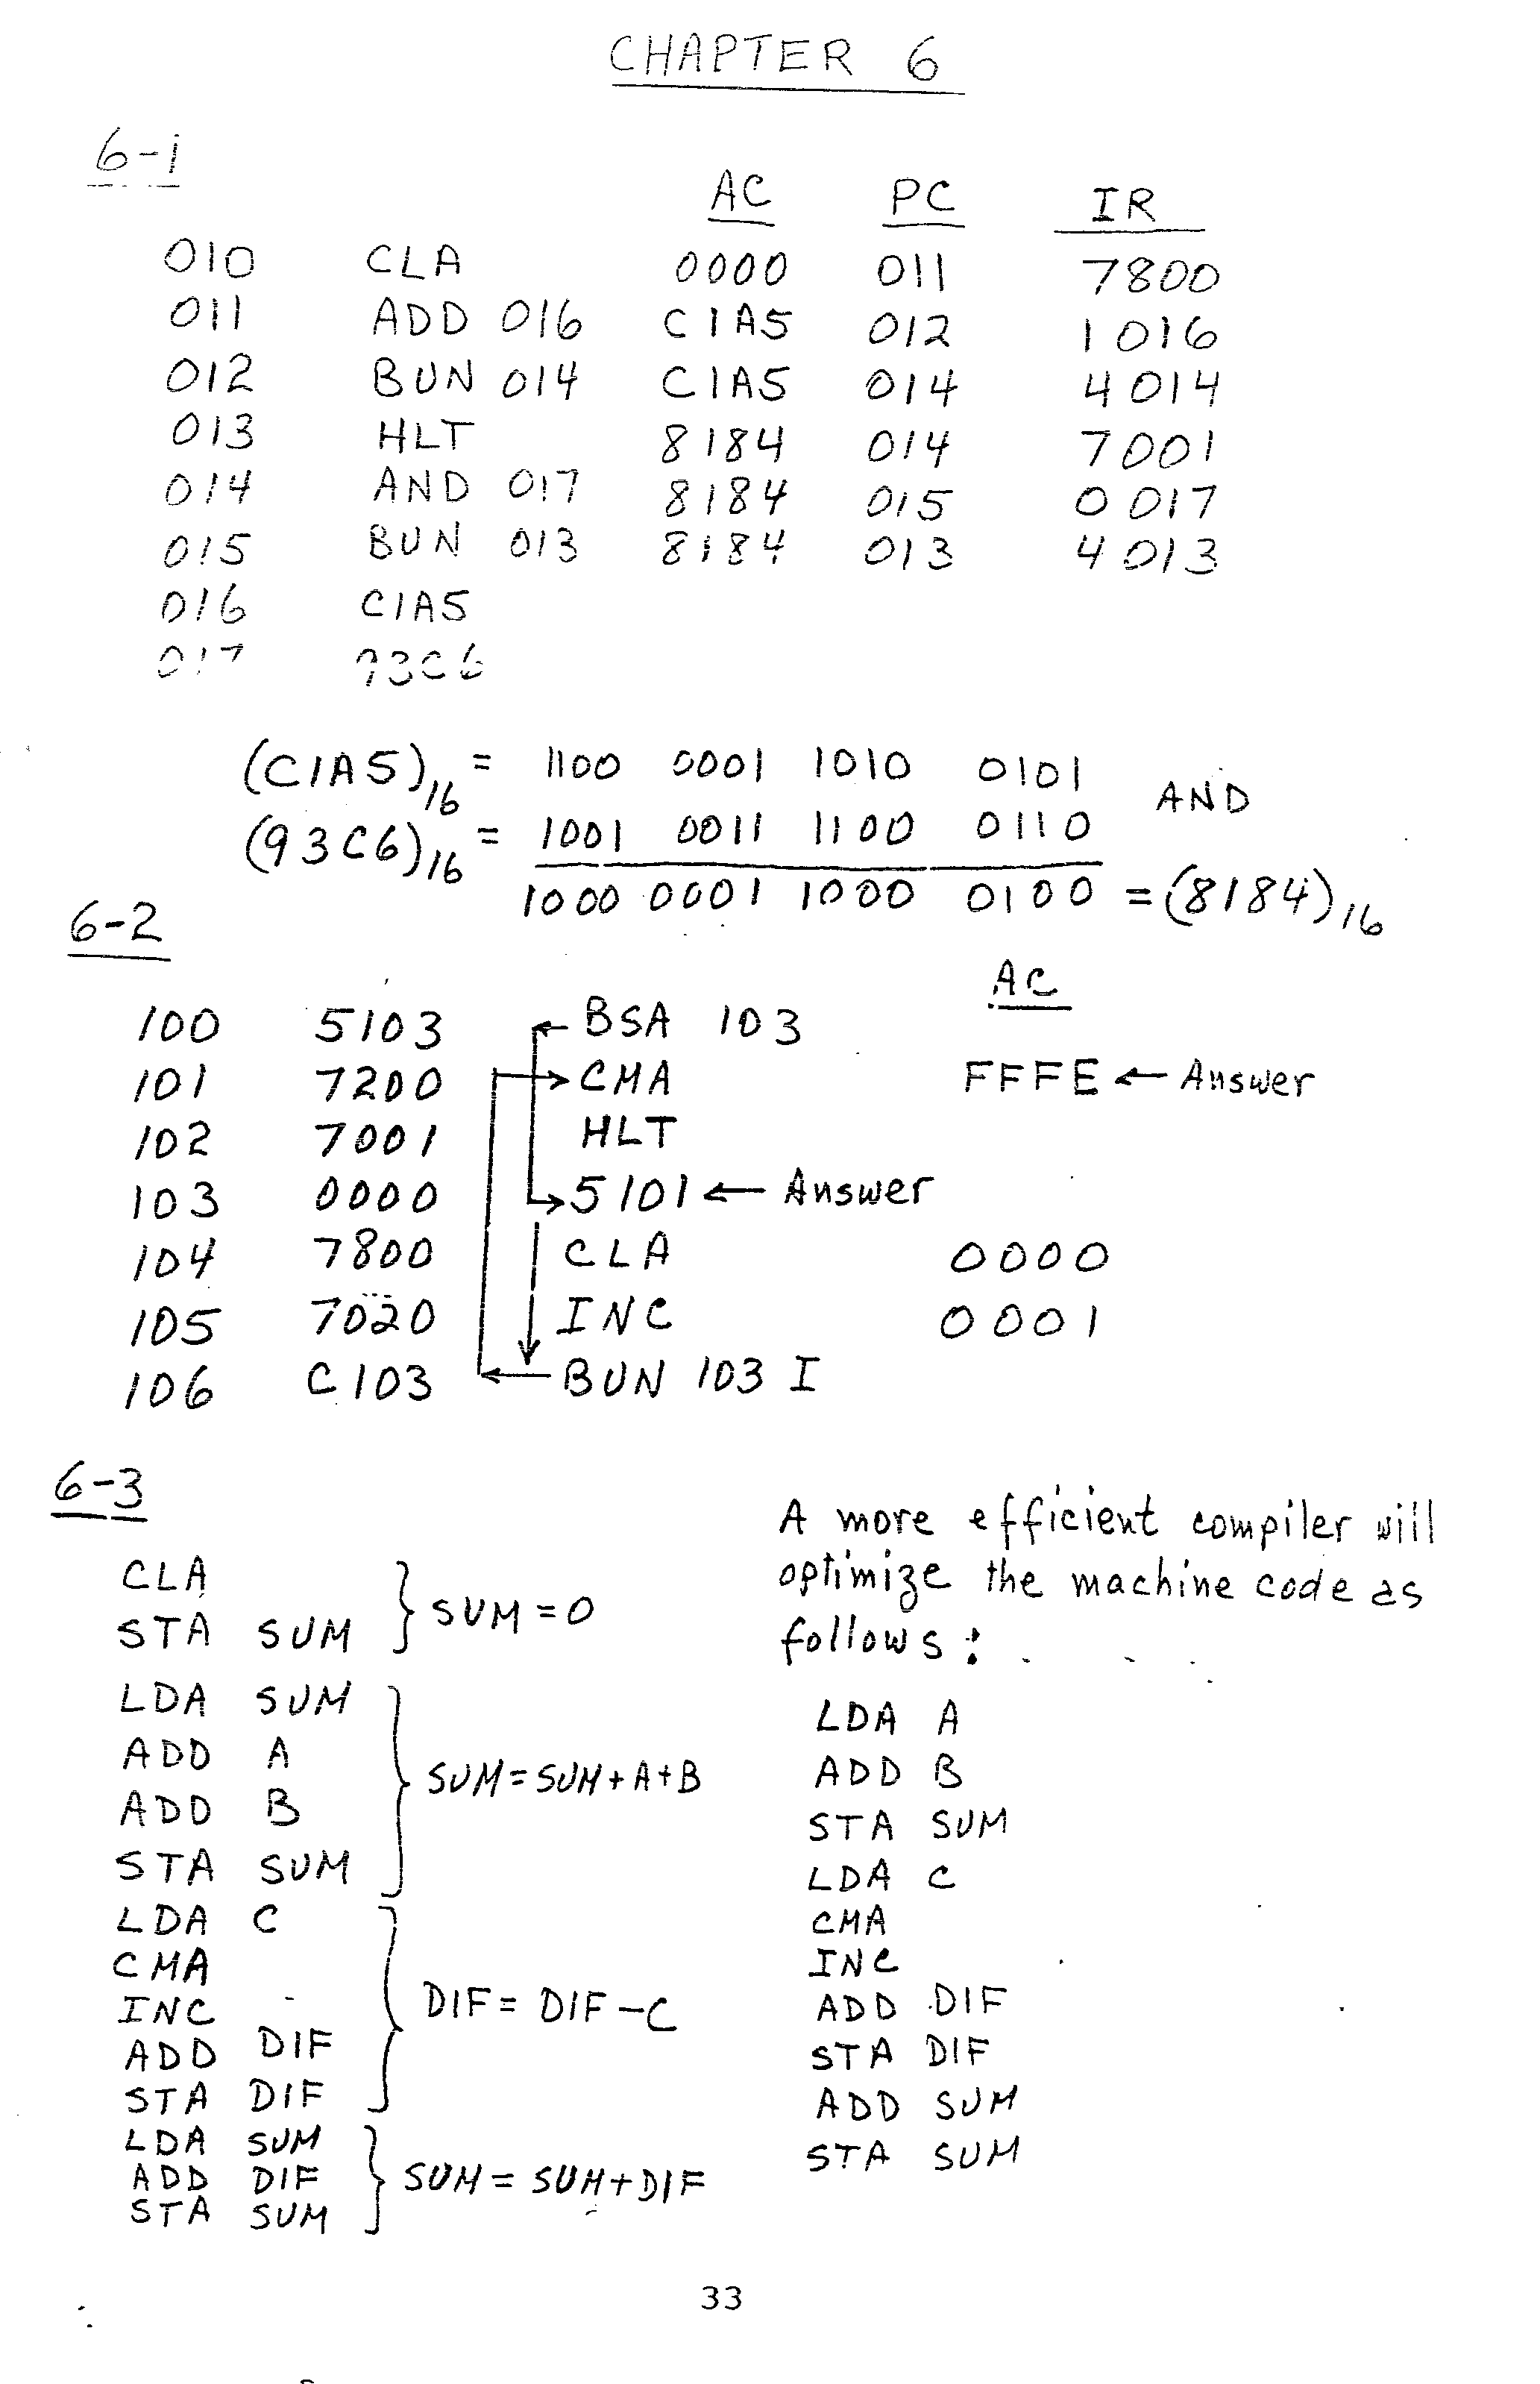 CHAPTER 6
6-1
AC PC IR
010 CLA 0000 011 7800
011 ADD 016 C1A5 012 1016
012 BUN 014 C1A5 014 4014
013 HLT 8184 014 7001
014 AND 017 8184 015 0017
015 BUN 013 8184 013 4013
016 C1A5
017 93C6
(C1A5)16 = 1100 0001 1010 0101 AND
(93C6)16 = 1001 0011 1100 0110
1000 0001 1000 0100 = (8184)16
6-2
AC
100 5103 ← BSA 103
101 7200 → CMA FFFE ← Answer
102 7001 HLT
103 0000 → 5101 ← Answer
104 7800 CLA 0000
105 7020 INC 0001
106 C103 ← BUN 103 I
6-3
CLA
STA SUM } SUM = 0
LDA SUM
ADD A
ADD B } SUM = SUM + A + B
STA SUM
LDA C
CMA
INC } DIF = DIF - C
ADD DIF
STA DIF
LDA SUM
ADD DIF } SUM = SUM + DIF
STA SUM
A more efficient compiler will
optimize the machine code as
follows:
LDA A
ADD B
STA SUM
LDA C
CMA
INC
ADD DIF
STA DIF
ADD SUM
STA SUM
33